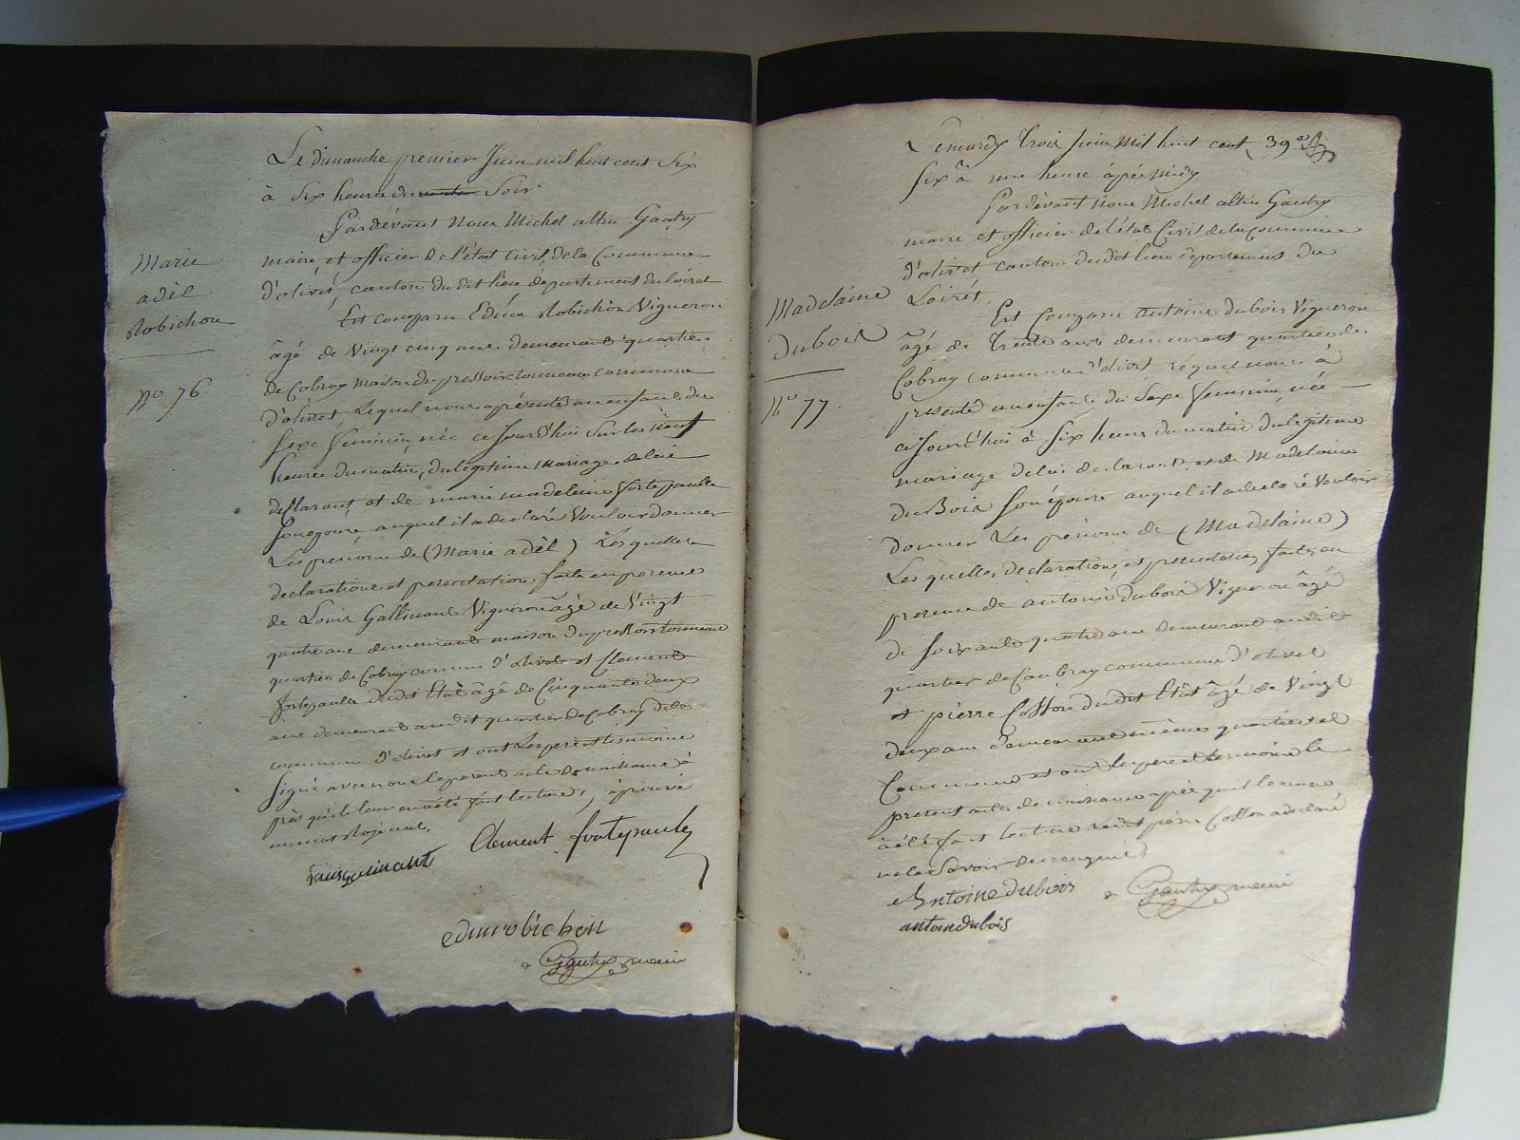 Marie
adèl
Robichon
No. 76
Le dimanche premier Juin mil huit cent Six
à Six heures du Soir
Pardévant Nous Michel altin Gautry
maire et officier de l'état Civil de la Commune
d'olivet, canton du dit lieu département du loiret
Est comparu Edme Robichon Vigneron
âgé de Vingt cinq ans demeurant quartier
de Cobray maison du pressoir tonneau commune
d'olivet, Lequel nous a présenté un enfant du
Sexe Feminin, née ce Jourd'hui Sur les neuf
heures du matin, du légitime mariage de lui
déclarant et de marie madeleine fortepaulle
Son epouse auquel il a declaré Vouloir donner
Les prenoms de (Marie adèl) Lesquelles
declarations et presentation faite en presence
de Louis Gallinant Vigneron âgé de Vingt
quatre ans demeurant maison du pressoir tonneau
quartier de Cobray commune d'olivet et Clement
fortepaulle dudit Etat âgé de Cinquante deux
ans demeurant audit quartier de Cobray
commune d'olivet et ont Les pere et temoins
Signé avec nous le present acte de naissance à
près qu'il leur en a été fait lecture, aprouvé
un mot Rayé nul.
Clement fortepaulle
edme robichon
Gautry maire
Madelaine
Dubois
No. 77
Le mardy Trois Juin Mil huit cent 39e
Six à une heure après midy
Pardévant nous Michel altin Gautry
maire et officier de l'état Civil de la Commune
d'olivet canton dudit lieu departement du
Loirét.
Est Comparu antoine dubois Vigneron
âgé de Trente ans demeurant quartier de
Cobray commune d'olivet Lequel nous à
presenté un enfant du Sexe Feminin, née
ce Jourd'hui à Six heures du matin du légitime
mariage de lui declarant et de Madelaine
du Bois Son épouse auquel il a declaré Vouloir
donner Les prénoms de (Madelaine)
Les quelles declarations et presentation faites en
presence de antoine dubois Vigneron âgé
de Soixante quatre ans demeurant audit
quartier de Caubray commune d'olivet
et pierre Cosson dudit Etât âgé de Vingt
deux ans demeurant même quartier et
Commune et ont les pere et temoins le
present acte de naissance après qu'il leur en
à été fait lecture pierre Cosson a declaré
ne le Savoir
Antoine dubois Gautry maire
antoin dubois